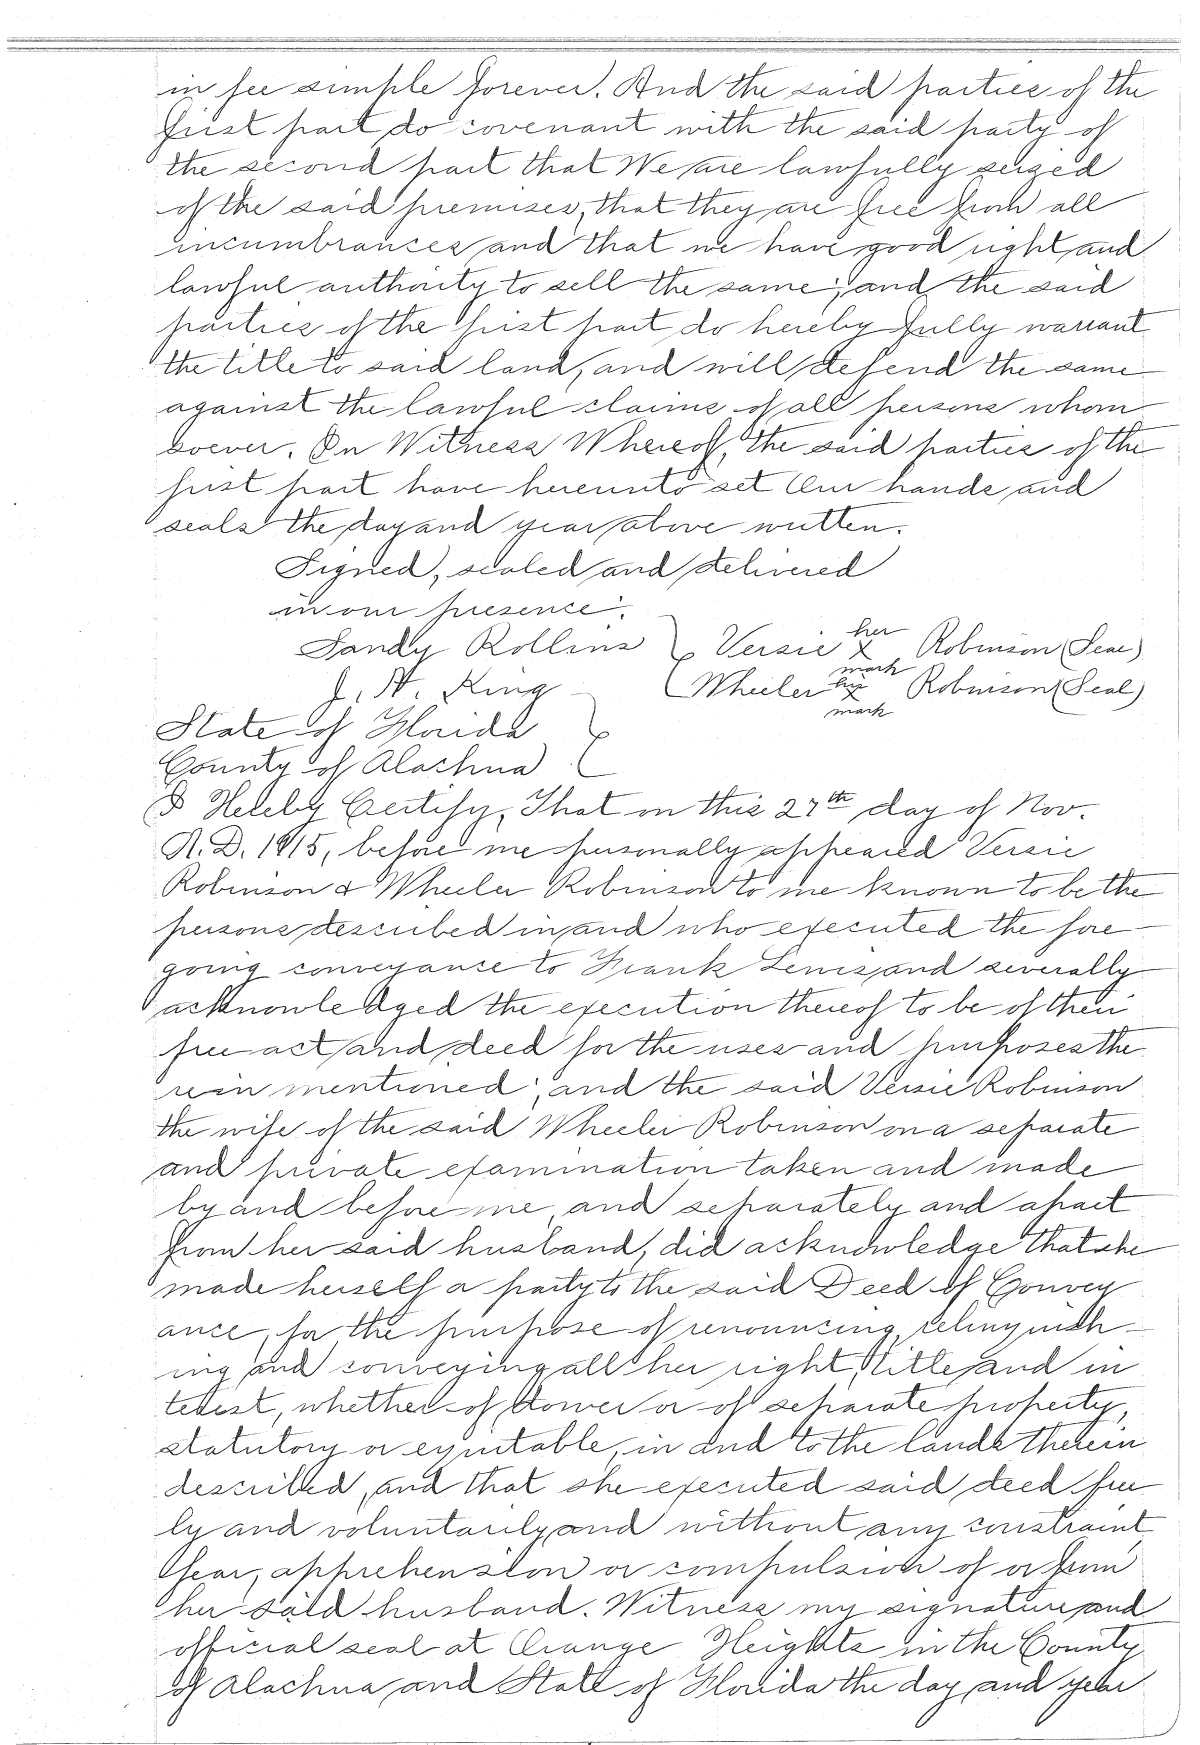 in fee simple forever. And the said parties of the
first part do covenant with the said party of
the second part that We are lawfully seized
of the said premises, that they are free from all
incumbrances and that we have good right and
lawful authority to sell the same; and the said
parties of the first part do hereby fully warrant
the title to said land, and will defend the same
against the lawful claims of all persons whom
soever. In Witness Whereof, the said parties of the
first part have hereunto set Our hands and
seals the day and year above written.
Signed, sealed and delivered
in our presence:
Sandy Rollins Versie her X mark Robinson (Seal)
J. H. King Wheeler his X mark Robinson (Seal)
State of Florida
County of Alachua
I Hereby Certify, That on this 27th day of Nov.
A.D. 1915, before me personally appeared Versie
Robinson & Wheeler Robinson to me known to be the
persons described in and who executed the fore
going conveyance to Frank Lewis, and severally
acknowledged the execution thereof to be of their
free act and deed for the uses and purposes the
rein mentioned; and the said Versie Robinson
the wife of the said Wheeler Robinson on a separate
and private examination taken and made
by and before me, and separately and apart
from her said husband, did acknowledge that she
made herself a party to the said Deed of Convey
ance, for the purpose of renouncing, relinquish-
ing and conveying all her right, title and in
terest, whether of dower or of separate property,
statutory or equitable, in and to the lands therein
described, and that she executed said deed free
ly and voluntarily and without any constraint,
fear, apprehension or compulsion of or from
her said husband. Witness my signature and
official seal at Orange Heights in the County
of Alachua and State of Florida the day and year